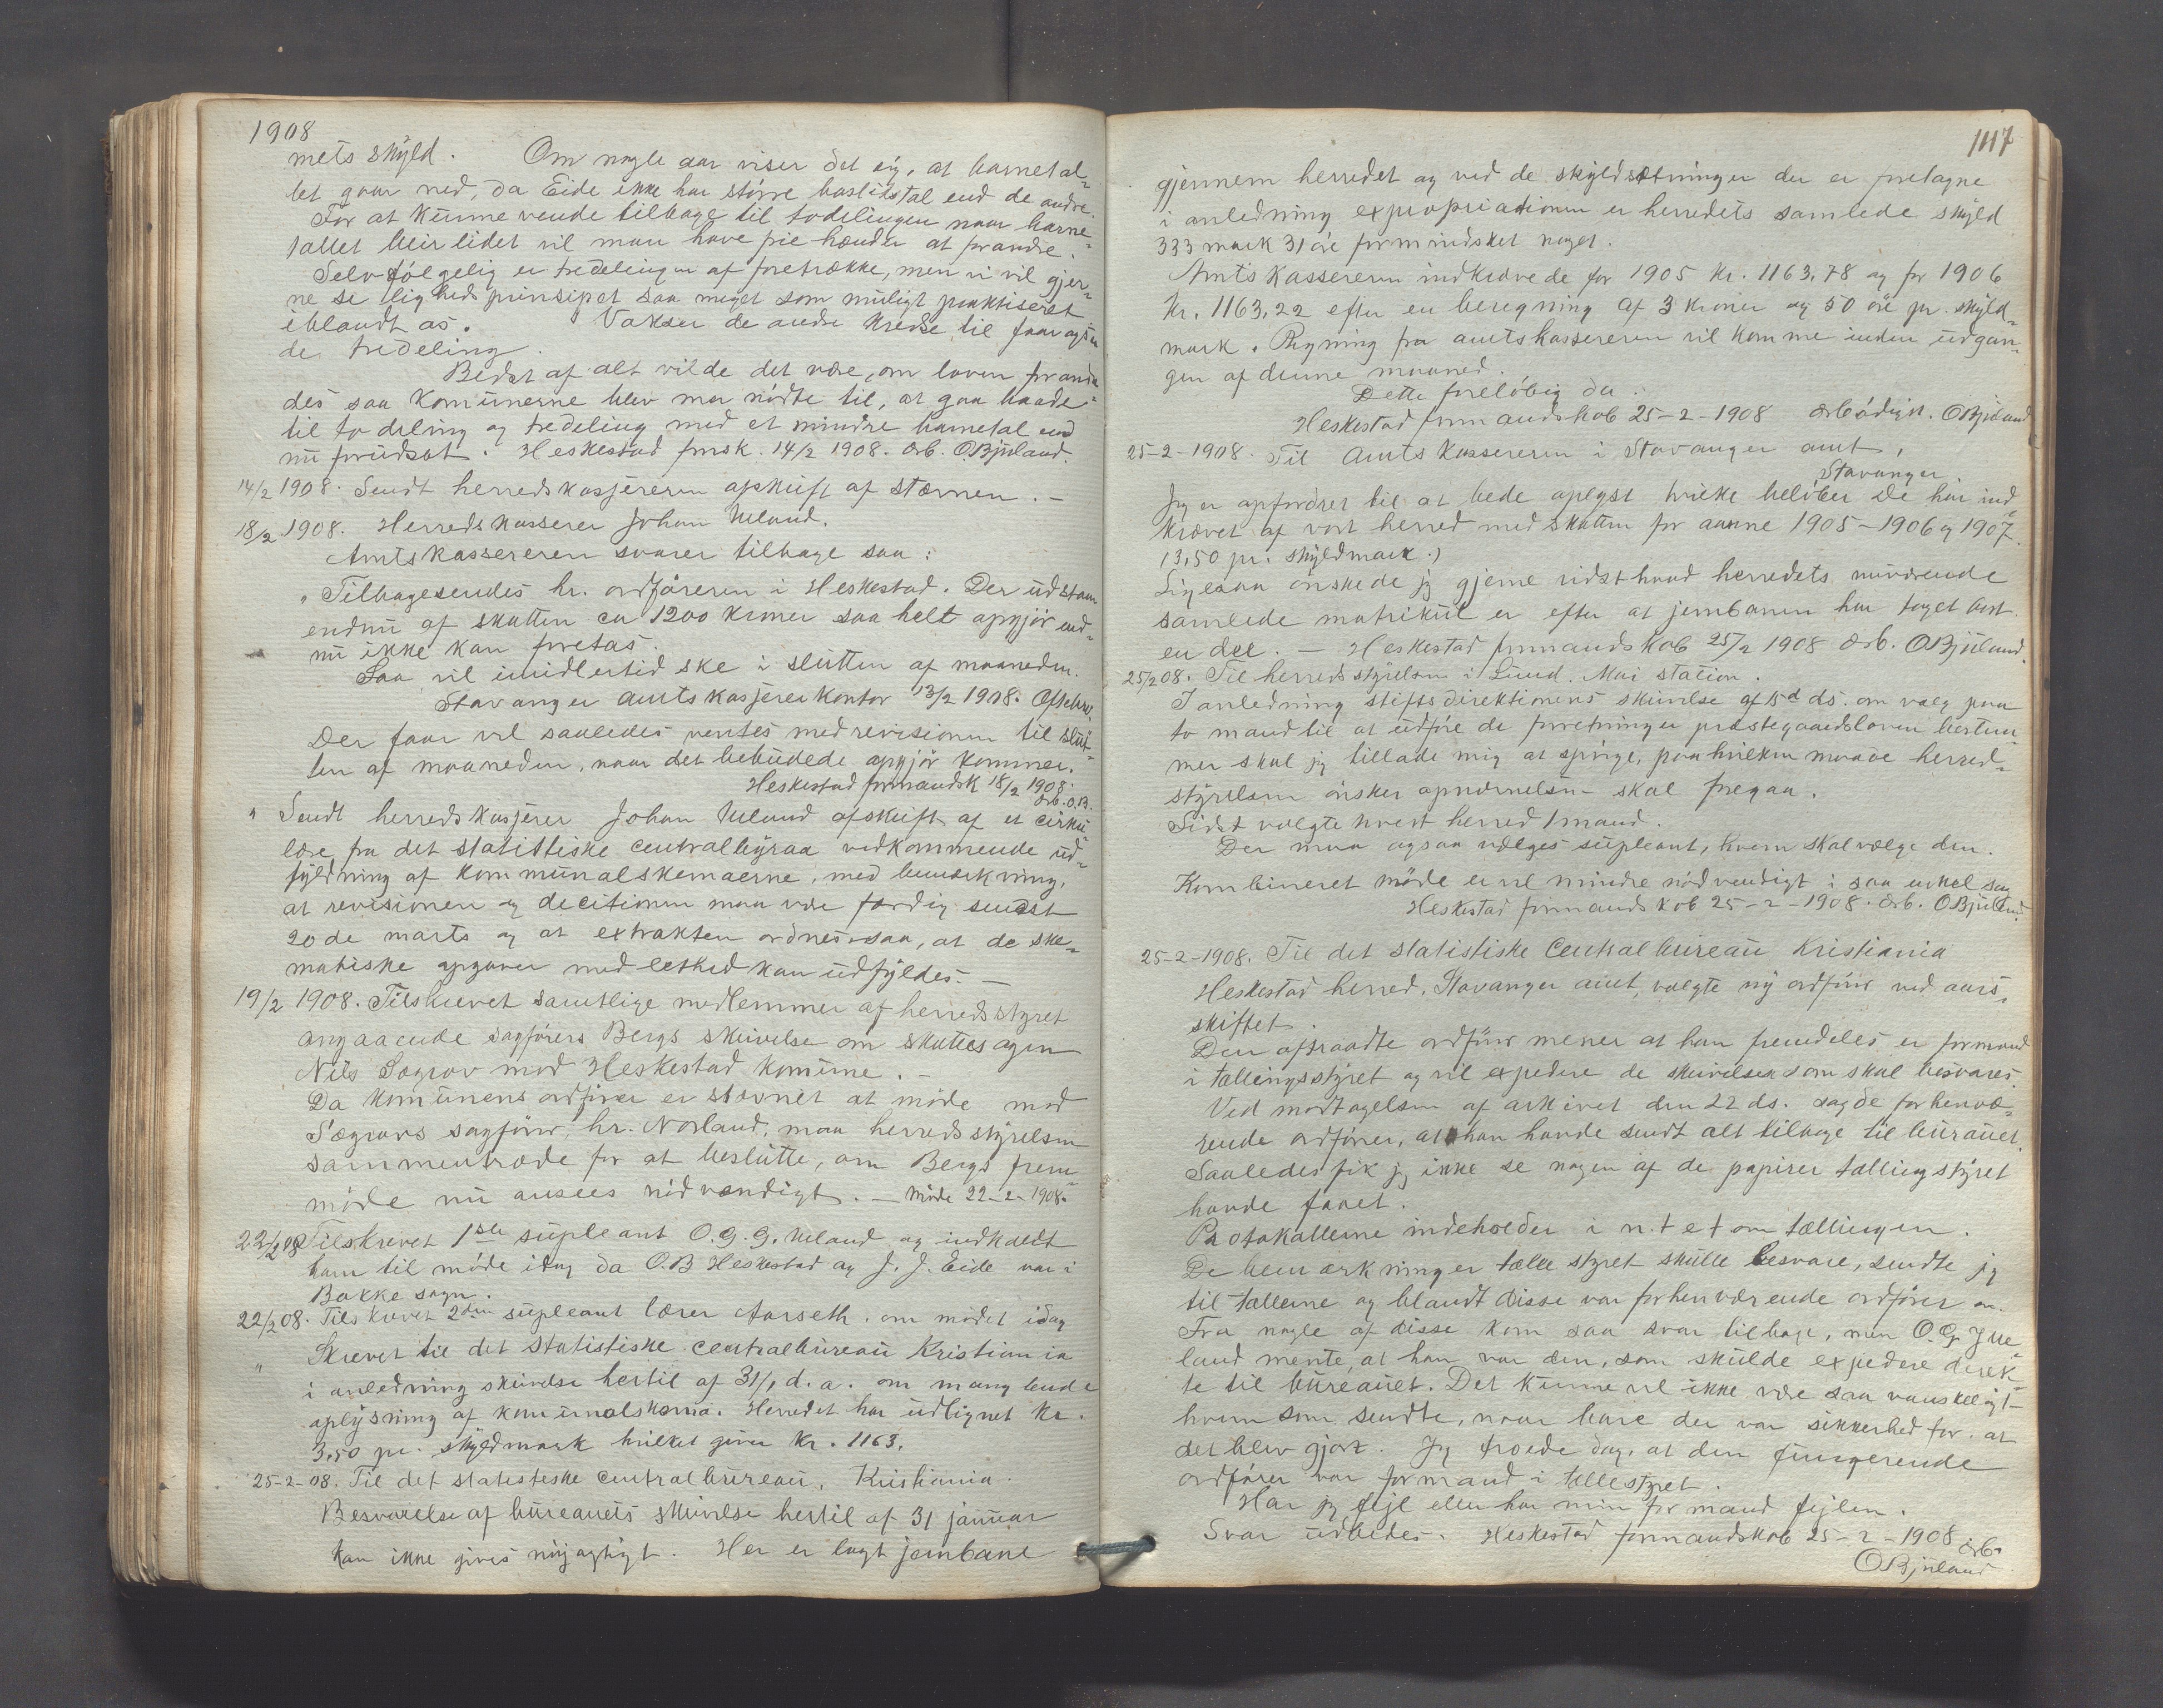 1908
mets skyld. Om nogle aar viser det sig, at barnetal-
let gaar ned, da Eide ikke har större bostedstal end de andre.
For at kunne vende tilbage til todelingen naar barne-
tallet blir lidet vil man have frie hænder at forandre.
Selvfölgelig er tredelingen at foretrække, men vi vil gjer-
ne se ligheds prinsipet saa meget som muligt praktiseret
iblandt os. Vokser de andre kredse til faar ogsaa
de tredeling.
Bedst af alt vilde det være, om loven forandre-
des saa Komunerne blev mer nödte til, at gaa baade
til todeling og tredeling med et mindre barnetal end
nu forudsat. Heskestad fmsk. 14/2 1908. Ærb. OBjuland.
14/2 1908. Sendt herredskasjereren afskrift af stævnen. —
18/2 1908. Herredskasserer Johan Ueland.
Amtskassereren svarer tilbage saa:
„Tilbagesendes hr. ordföreren i Heskestad. Der udstaar
endnu af skatten ca 1200 kroner saa helt opgjör end-
nu ikke kan foretas.
Saa vil imidlertid ske i slutten af maaneden.
Stavanger amtskasjererkontor 13/2 1908.
Der faar vel saaledes ventes med revisionen til slut-
ten af maaneden, naar det bebudede opgjör kommer.
Heskestad formandsk 18/2 1908.
Ærb. O.B.
„ Sendt herredskasjerer Johan Ueland afskrift af et cirku-
lære fra det statistiske centralbyraa vedkommende ud-
fyldning af kommunalskemaerne, med bemerkning,
at revisionen og decitionen maa være færdig senest
20de marts og at extrakten ordnes saa, at de ske-
matiske opgaver med lethed kan udfyldes. —
19/2 1908. Tilskrevet samtlige medlemmer af herredsstyret
angaaende sagförers Bergs skrivelse om skattesagen
Nils Sægrov mod Heskestad komune. —
Da komunens ordförer er stævnet at möde mod
Sægrovs sagförer, hr. Norland, maa herredsstyrelsen
sammentræde for at beslutte, om Bergs frem-
möde nu ansees nödvændigt. — Möde 22-2-1908.
22/2 08 Tilskrevet 1ste supleant O.G.G. Ueland og indkaldt
ham til möde idag da O.B Heskestad og J. J. Eide var i
Bakke sogn.
22/2 08. Tilskrevet 2den supleant lærer Aarseth om mödet idag
„ Skrevet til det statistiske centralbureau Kristiania
i anledning skrivelse hertil af 31/1 d. a. om manglende
oplysning af komunalskema. Herredet har udlignet kr.
3,50 pr. skyldmark hvilket giver kr. 1163.
25-2-08. Til det statistiske centralbureau, Kristiania.
Besvarelse af bureauets skrivelse hertil af 31 januar
kan ikke gives nöjagtigt. Her er lagt jernbane
1117
gjennem herredet og ved de skyldsætninger der er foretagne
i anledning expropriationen er herredets samlede skyld
333 mark 31 öre formindsket noget.
Amtskassereren indkrævede for 1905 kr. 1163,78 og for 1906
kr. 1163,22 efter en beregning af 3 kroner og 50 öre pr. skyld-
mark. Regning fra amtskassereren vil komme inden udgan-
gen af denne maaned.
Dette foreløbig da.
Heskestad formandskab 25-2-1908 Ærbödigst. OBjuland
25-2-1908. Til Amtskassereren i Stavanger amt,
Stavanger
Jeg er opfordret til at bede oplyst hvilke belöber De har ind-
krævet af vort herred med skatten for aarene 1905-1906 og 1907.
13,50 pr. skyldmark.)
Ligesaa önskede jeg gjerne vidst hvad herredets nuværende
samlede matrikul er efter at jernbanen har taget bort
en del. — Heskestad formandskab 25/2 1908 Ærb. OBjuland.
25/2 08. Til herredsstyrelsen i Lund. Moi station.
I anledning stiftsdirektionens skrivelse af 15d ds. om valg paa
to mand til at udföre de forretninger præstegaardsloven bestem-
mer skal jeg tillade mig at spörge, paa hvilken maade herred-
styrelsen önsker opnævnelsen skal foregaa.
Sidst valgte hvert herred 1 mand.
Der maa ogsaa vælges supleant, hvem skal vælge den.
Kombineret möde er vel mindre nödvendigt i saa enkel sag
Heskestad formandskab 25-2-1908. Ærb. OBjuland.
25-2-1908. Til det statistiske Centralbureau Kristiania
Heskestad herred, Stavanger amt, valgte ny ordförer ved aars-
skiftet.
Den afgaaedte ordförer mener at han fremdeles er formand
i tællingsstyret og vil expedere de skrivelser som skal besvares.
Ved modtagelsen af arkivet den 22 ds. sagde forhenvæ-
rende ordförer, at han havde sendt alt tilbage til bureauet.
Saaledes fik jeg ikke se nogen af de papirer tællingstyret
havde faaet.
Protokollerne indeholder i n.t e t om tællingen.
De bemærkninger tællestyret skulle besvare, sendte jeg
til tællerne og blandt disse var forhenværende ordförer
Fra nogle af disse kom saa svar tilbage, men O.G. Jue-
land mente, at han var den, som skulde expedere direk-
te til bureauet. Det kunne vel ikke være saa vanskeligt
hvem som sendte, naar bare der var sikkerhed for at
det blev gjort. Jeg troede dog, at den fungerende
ordförer var formand i tællestyret.
Har jeg fejl eller har min formand fejlen.
Svar udbedes. Heskestad formandskab 25-2-1908 Ærb.
OBjuland